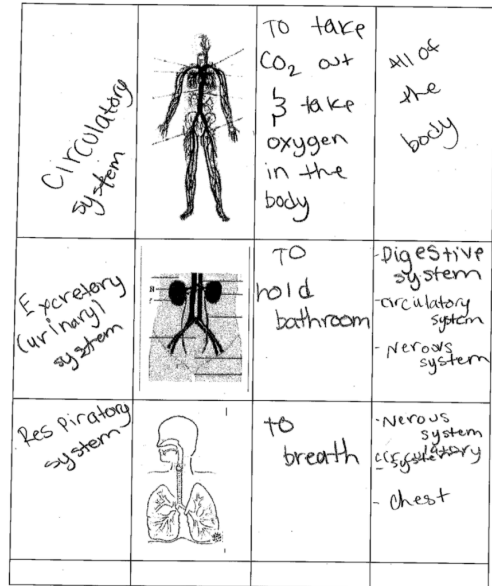 Circulatory
system
To take
CO₂ out
& take
oxygen
in the
body
All of
the
body
Excretory
(urinary)
system
To
hold
bathroom
- Digestive
system
- circulatory
system
- Nerous
system
Respiratory
system
To
breath
- Nerous
system
- circulatory
system
- Chest